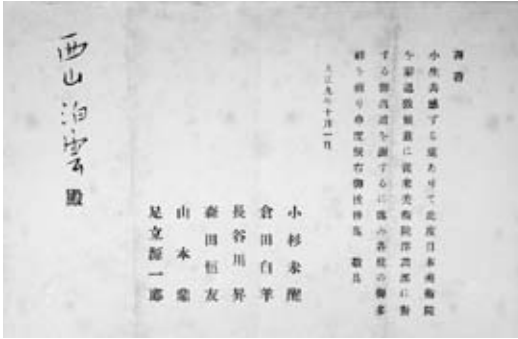 小生共感ずる處ありて此度日本美術院
を辭退致候茲に從來美術院洋畫部に對
する御高庇を謝するに臨み各位の御多
祥を祈り申度候右御挨拶迄 敬具
大正九年十月一日
小杉未醒
倉田白羊
長谷川昇
森田恒友
山本鼎
足立源一郎
西山泊雲殿